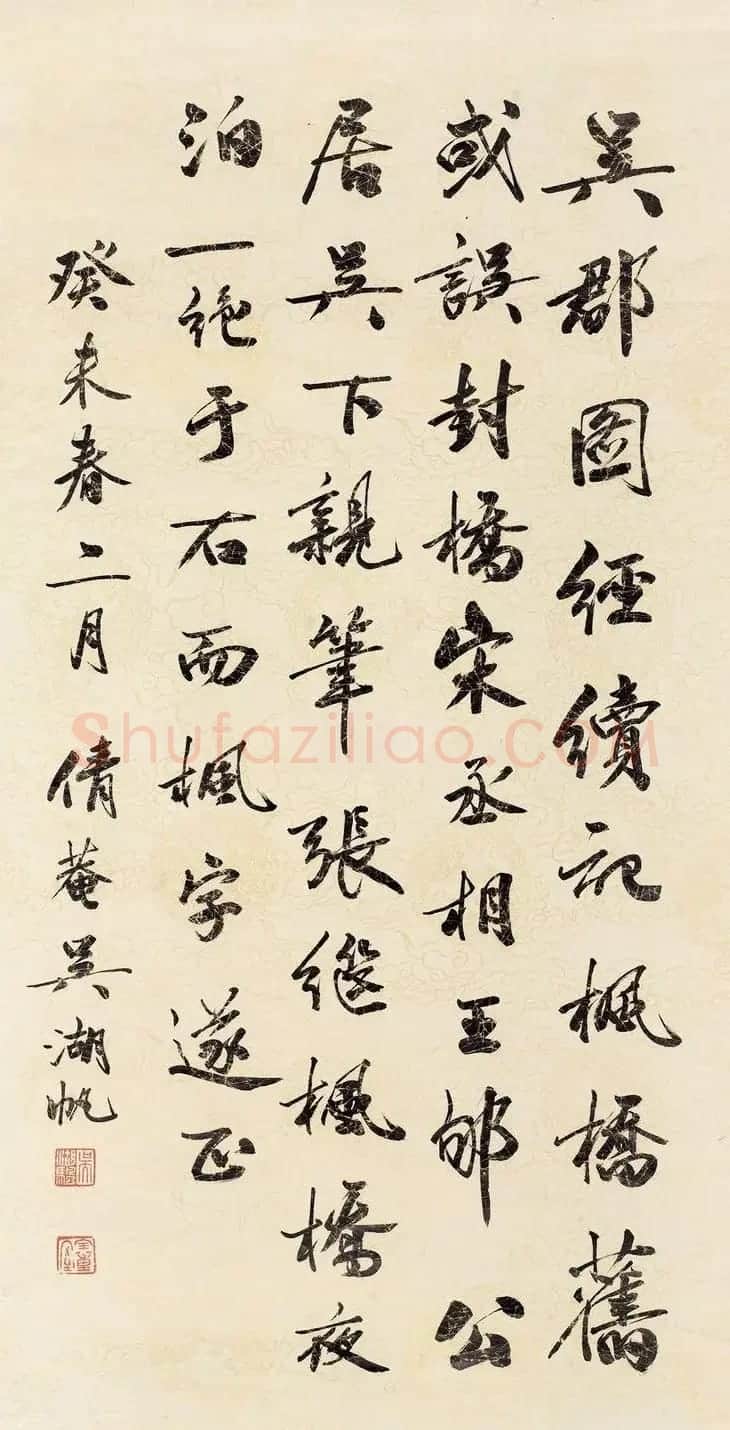 吴郡圖經續記楓橋舊
或誤封橋宋丞相王郇公
居吴下親筆張繼楓橋夜
泊一絶于石而楓字遂正
癸未春二月 倩菴吴湖帆
Shufaziliao.COM